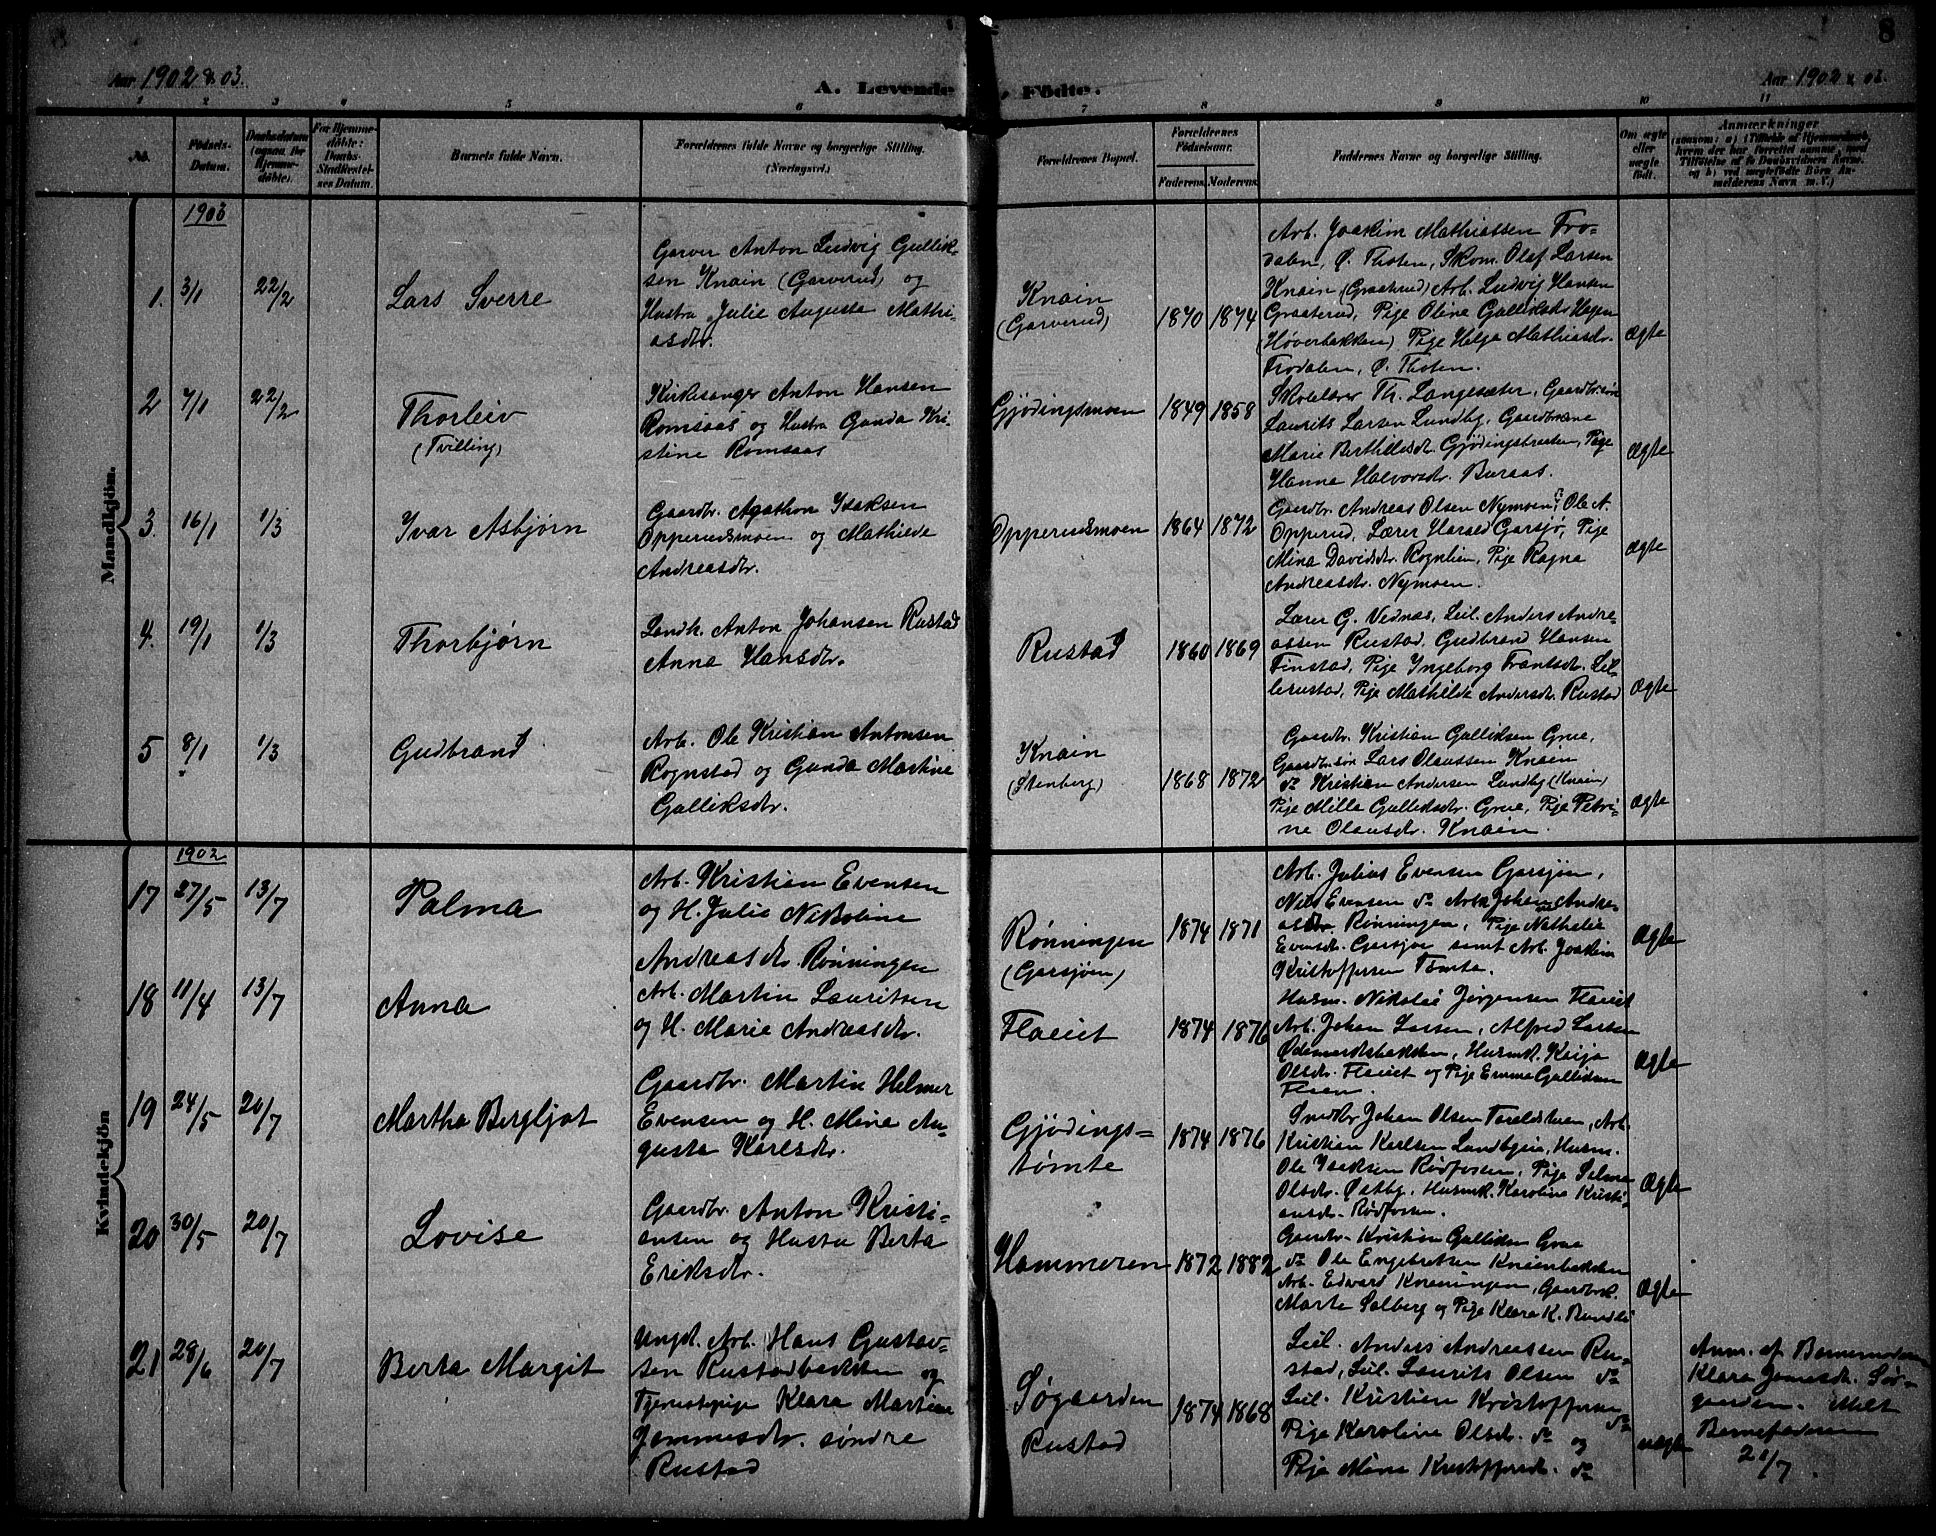 8
Aar 1902 & 03.
A. Levende Födte.
Aar 1902 & 03.
1 2 3 4 5 6 7 8 9 10 11
No.
Födsels-
Datum.
Daabsdatum
(ogsaa for
Hjemme-
döbte).
For Hjemme-
döbte:
Daabs-
Stadfæstel-
ses Datum.
Barnets fulde Navn.
Forældrenes fulde Navne og borgerlige Stilling.
(Næringsvei.)
Forældrenes Bopæl.
Forældrenes
Födselsaar.
Faderens. Moderens.
Faddernes Navne og borgerlige Stilling.
Om ægte
eller
uægte
födt.
Anmærkninger
(saasom: a) i Tilfælde af Hjemmedaab,
hvem der har forrettet samme, med
Tilföielse af to Daabsvidners Navne,
og b) ved uægtefödte Börn An-
melderens Navn m. V.)
Mandkjön.
1903
1. 3/1 22/2
Lars Sverre
Garver Anton Ludvig Gullik-
sen Knain (Garverud) og
Hustru Julie Auguste Mathi-
asdtr.
Knain
(Garverud)
1870 1874
Arb. Joakim Mathiassen Fro-
dalen, Ø. Thoten, Skom. Olaf Larsen
Knain (Graaterud) Arb. Ludvig Hansen
Graaterud, Pige Oline Galliksdr. Hagen
(Høverbakken) Pige Helga Mathiasdr.
Frodalen, Ø. Thoten.
Ægte
2 7/1 22/2
Thorleiv
(Tvilling)
Kirkesanger Anton Hansen
Romsaas og Hustru Gunda Kri-
stine Romsaas
Gjødingsmoen
1849 1858
Skolelærer Th. Langesæter, Gaardbr.søn
Laurits Larsen Lundby, Gaardbrune
Marie Berthillesdr. Gjødingstrøen, Pige
Hanna Halvorsdr. Buraas.
Ægte
3. 16/1 1/3
Ivar Asbjørn
Gaardbr. Agathon Isaksen
Opperudsmoen og Mathilde
Andreasdtr.
Opperudsmoen
1864 1872
Gaardbr. Andreas Olsen Nymoen, Ole A.
Opperud, Lærer Harald Garsjø, Pige
Mina Davidsdr. Rognlien, Pige Ragna
Andreasdtr. Nymoen.
Ægte
4. 19/1 1/3
Thorbjørn
Landh. Anton Johansen Rustad
Anna Hansdtr.
Rustad
1860 1869
Lærer G. Vednæs, Leil. Anders Andre-
assen Rustad, Gudbrand Hansen
Finstad, Pige Ingeborg Frantsdr. Lil-
lerustad, Pige Mathilde Andersdr. Rustad
Ægte
5 8/1 1/3
Gudbrand
Arb. Ole Kristian Antonsen
Rognstad og Gunda Martine
Galliksdtr.
Knain
(Stenberg)
1868 1872
Gaardbr. Kristian Galliksen Grue,
Gaardbrsøn Lars Olaussen Knain
do Kristian Andersen Lundby (Knain)
Pige Milla Galliksdtr. Grue, Pige Petri-
ne Olausdtr. Knain.
Ægte
Kvindekjön
1902
17 27/5 13/7
Palma
Arb. Kristian Evensen
og H. Julie Nikoline
Andreasdtr. Rønningen
Rønningen
(Garsjøen)
1874 1871
Arb. Julius Evensen Garsjøen,
Nils Evensen do Arbk Johan Andre-
asdtr. Rønningen, Pige Nathalie
Evensdtr. Garsjøen samt Arb. Joakim
Kristoffersen Tømta.
Ægte
18 11/4 13/7
Anna
Arb. Martin Lauritsen
og H. Marie Andreasdtr.
Flaeiet
1874 1876
Husm. Nikolai Jørgensen Flaeiet
Arb. Johan Larsen, Alfred Larsen
Ødemarksbakken, Husmk. Kaija
Olsdtr. Flaeiet og Pige Emma Galliksen
Flaen.
Ægte
19 24/5 20/7
Martha Bergljot
Gaardbr. Martin Helmer
Evensen og H. Mina Au-
gusta Karlsdtr.
Gjødings=
tømte
1874 1876
Snedkr Johan Olsen, Arb.
Kristian Karlsen Lundbyeie, Husm.
Ole Isaksen Rødfossen, Pige Selma
Olsdtr. Østby, Husmk. Karoline Kristi-
ansdr. Rødfossen.
Ægte
20 30/5 20/7
Lovise
Gaardbr. Anton Kristi-
ansen og Hustru Berta
Eriksdtr.
Hammeren
1872 1882
Gaardbr. Kristian Galliksen Grue
do Ole Engebretsen Knainbakken
Arb. Edvard Kneningen, Gaardbrk.
Marte Solberg og Pige Klara K.
Ægte
21 28/6 20/7
Berta Margit
Ungk. Arb. Hans Gustav-
sen Rustadbakken og
Tjenestepige Klara Martine
Jammesdtr. søndre
Rustad
Søgaarden
Rustad
1874 1868
Leil. Anders Andreassen Ru-
stad, Leil. Laurits Olsen do
Leil. Kristian Kristoffersen do
Pige Karoline Olsdr. do og
Pige Mina Kristoffersdr. do
uægte
Anm. af Barnemoderen
Klara Jamesdr. Sør-
gaarden. Meldt
Barnefaderen
21/7.